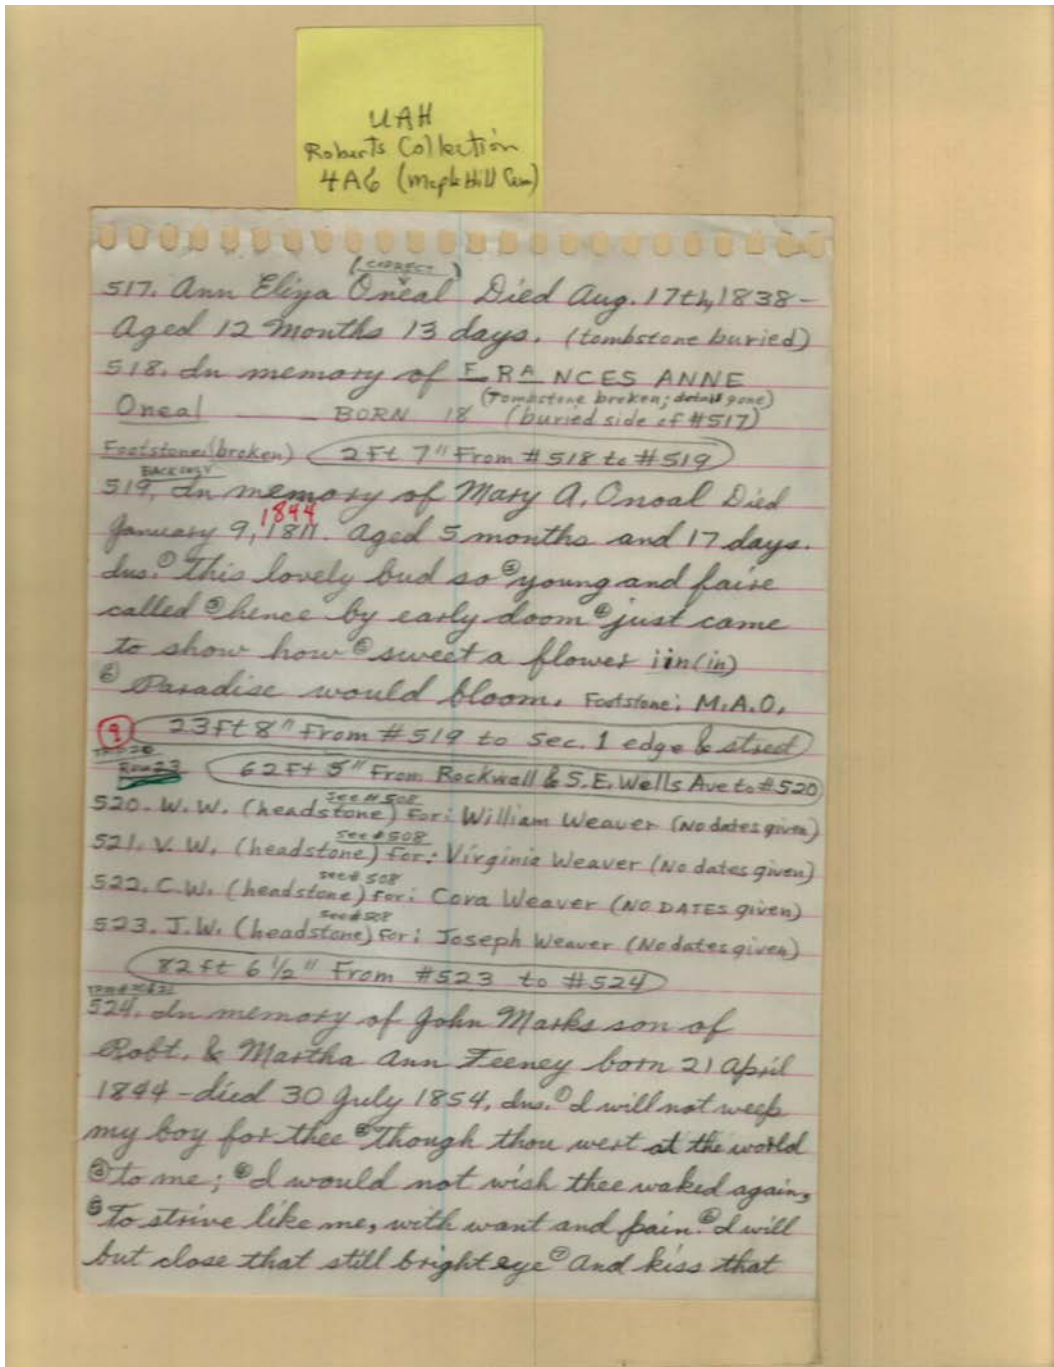 UAH
Roberts Collection
4A6 (Maple Hill Cem)
(CORRECT)
517. Ann Eliza Oneal Died Aug. 17th, 1838-
Aged 12 Months 13 days. (tombstone buried)
518. In memory of FRANCES ANNE
(Tombstone broken; detail gone)
Oneal BORN 18 (buried side of #517)
Footstone: (broken) 2Ft 7" From #518 to #519
519. In memory of Mary A. Onoal Died
1844
January 9, 18 . Aged 5 months and 17 days.
Ins. ① This lovely bud so ② young and faire
called ③ hence by early doom ④ just came
to show how ⑤ sweet a flower iin (in)
⑥ Paradise would bloom. Footstone: M.A.O.
9 23Ft 8" From #519 to Sec. 1 edge & street
Row 23 62Ft 5" From Rockwall & S.E. Wells Ave to #520
see #508
520. W.W. (headstone) For: William Weaver (No dates given)
see #508
521. V.W. (headstone) For: Virginia Weaver (No dates given)
see # 508
522. C.W. (headstone) For: Cora Weaver (NO DATES given)
see #508
523. J.W. (headstone) For: Joseph Weaver (No dates given)
82ft 6 1/2" From #523 to #524
524. In memory of John Marks son of
Robt. & Martha Ann Feeney born 21 April
1844 - died 30 July 1854. Ins. ① I will not weep
my boy for thee ② Though thou wert at the world
③ to me; ④ I would not wish thee waked again,
⑤ To strive like me, with want and pain. ⑥ I will
but close that still bright eye ⑦ And kiss that